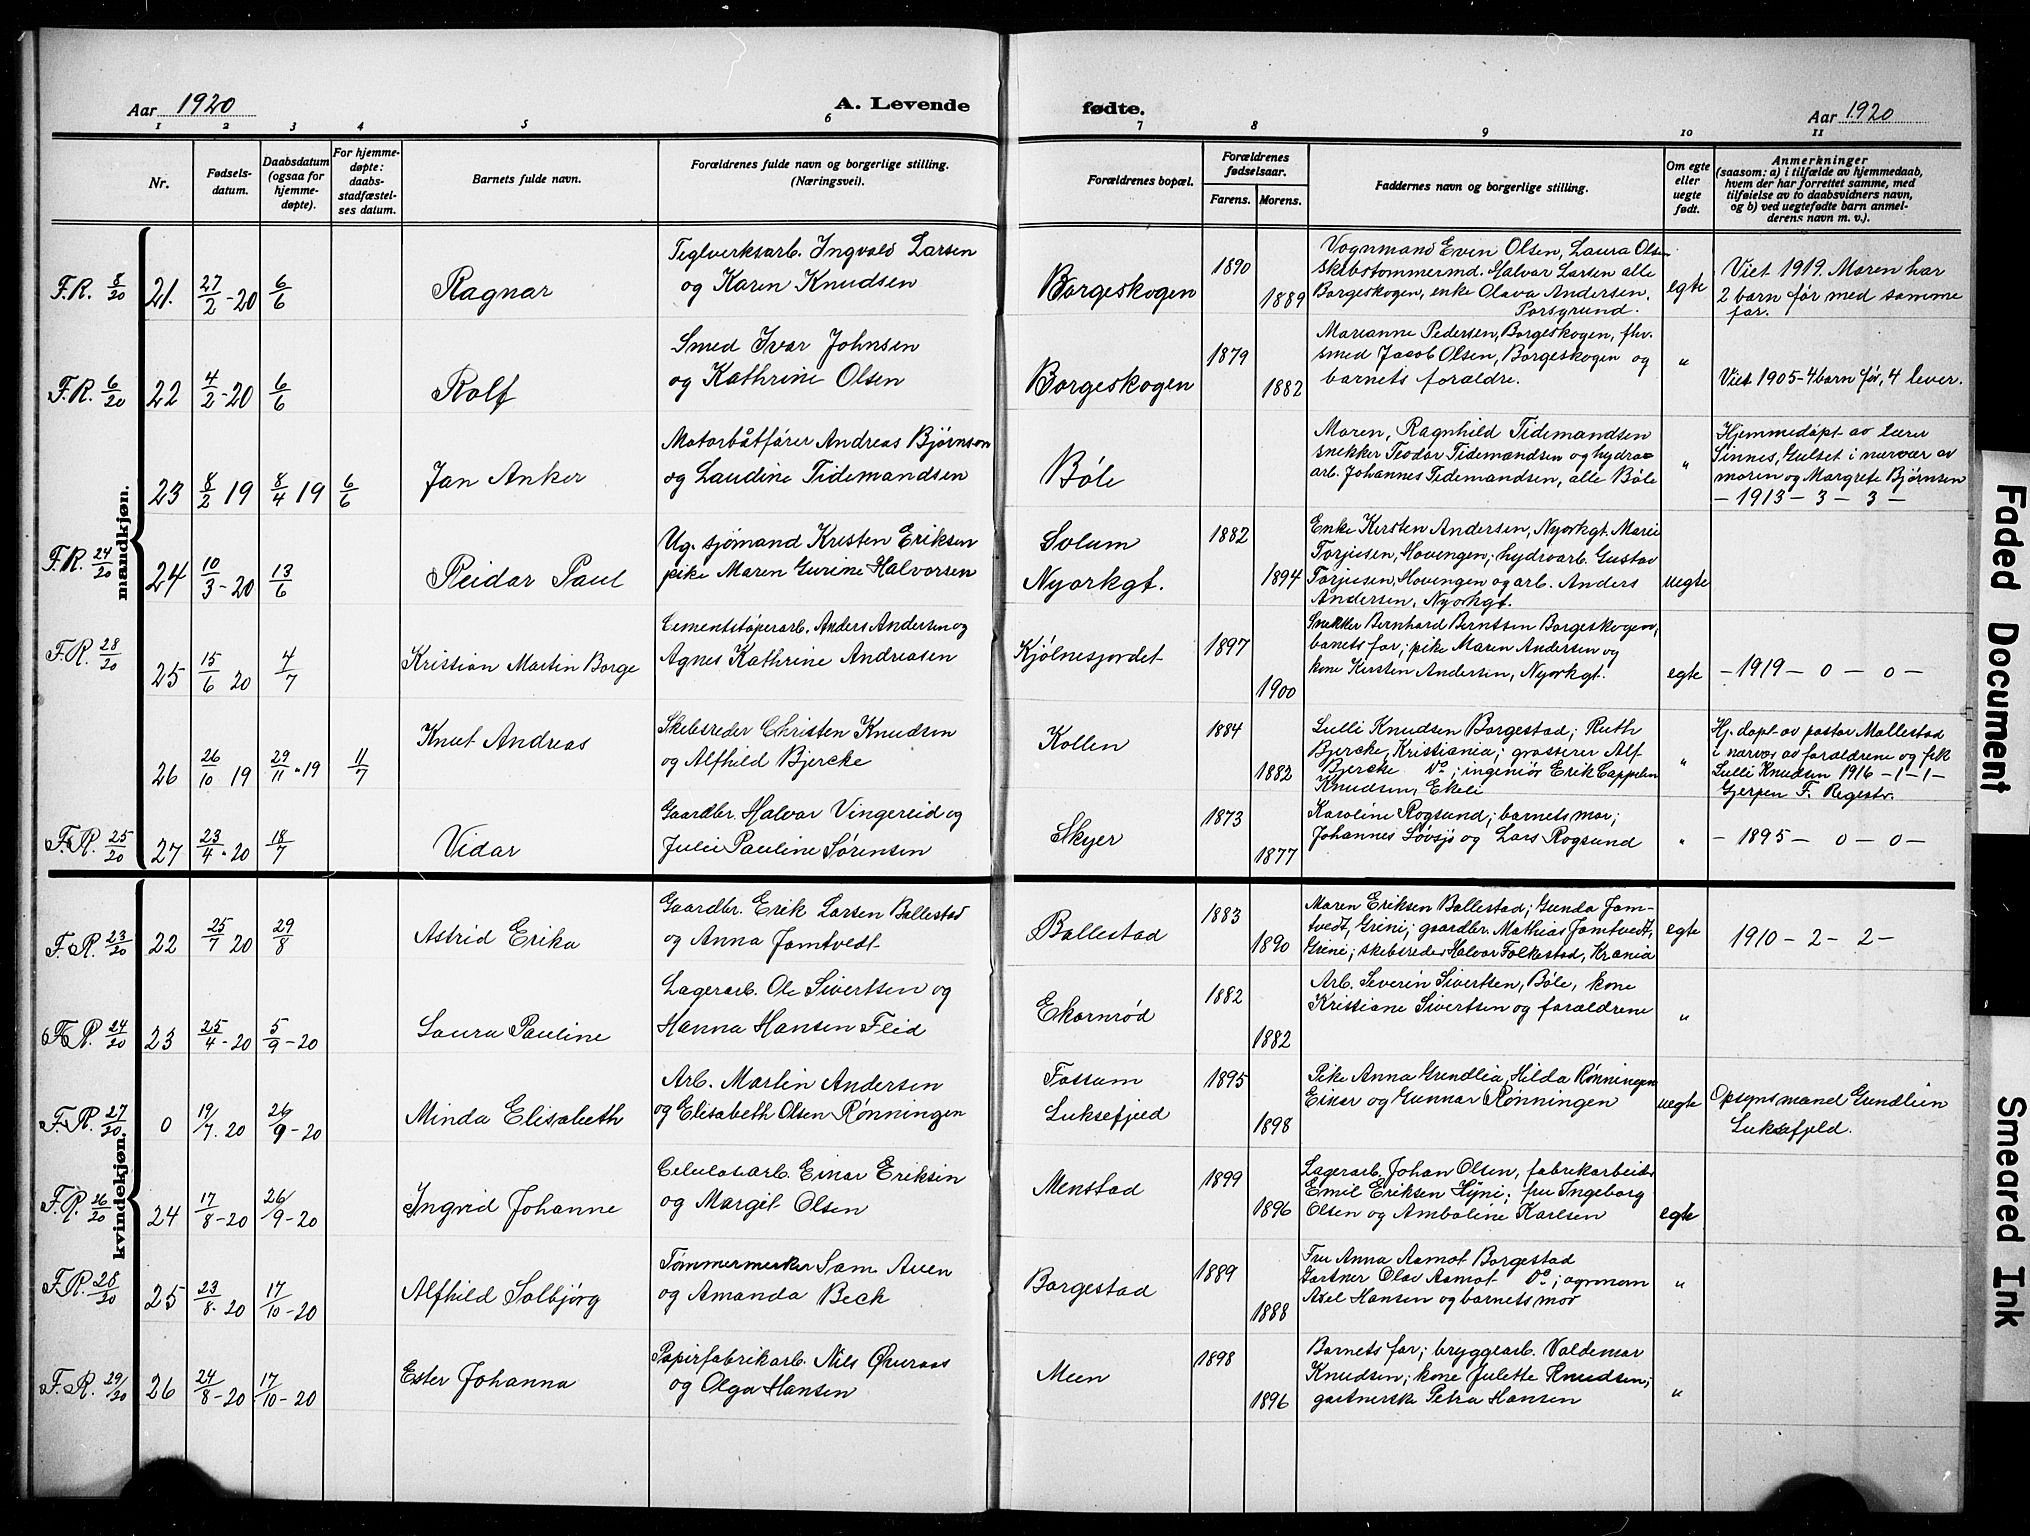 Aar 1920
A. Levende
fødte.
Aar 1920
1 2 3 4 5 6 7 8 9 10 11
Nr.
Fødsels-
datum.
Daabsdatum
(ogsaa for
hjemme-
døpte).
For hjemme-
døpte:
daabs-
stadfæstel-
ses datum.
Barnets fulde navn.
Forældrenes fulde navn og borgerlige stilling.
(Næringsvei).
Forældrenes bopæl.
Forældrenes
fødselsaar.
Farens. Morens.
Faddernes navn og borgerlige stilling.
Om egte
eller
uegte
født.
Anmerkninger
(saasom: a) i tilfælde av hjemmedaab,
hvem der har forrettet samme, med
tilføielse av to daabsvidners navn,
og b) ved uegtefødte barn anmel-
derens navn m. v.).
mandkjøn.
F.R. 8/20 21. 27/2-20 6/6 Ragnar
Teglverksarb. Ingvald Larsen
og Karen Knudsen
Borgeskogen 1890 1889
Vognmand Even Olsen, Laura Olsen
skibstømmermd. Halvor Larsen alle
Borgeskogen, enke Olava Andersen,
Porsgrund.
egte
Viet 1919. Moren har
2 barn før med samme
far.
F.R. 6/20 22 4/2-20 6/6 Rolf
Smed Ivar Johnsen
og Kathrine Olsen
Borgeskogen 1879 1882
Marianne Pedersen, Borgeskogen, fhv.
smed Jacob Olsen, Borgeskogen og
barnets forældre.
"
Viet 1905-4 barn før, 4 lever.
23 8/2 19 8/4 19 6/6 Jan Anker
Motorbåtfører Andreas Bjørnson
og Laudine Tidemandsen
Bøle
Moren, Ragnhild Tidemandsen
snekker Teodor Tidemandsen og hydro=
arb. Johannes Tidemandsen, alle Bøle
"
Hjemmedøpt av lærer
Sinnes, Gulset i nærvær av
moren og Margrete Bjørnsen
- 1913 - 3 - 3 -
F.R. 24/20 24 10/3-20 13/6 Reidar Paul
Ug. sjømand Kristen Eriksen
pike Maren Gurine Halvorsen
Solum
Nyorkgt.
1882 1894
Enke Kirsten Andersen, Nyorkgt. Marie
Torjusen, Hovengen; hydroarb. Gustav
Torjusen, Hovengen og arb. Anders
Andersen, Nyorkgt.
uegte
F.R. 28/20 25 15/6 20 4/7 Kristian Martin Borge
Cementstøperarb. Anders Andersen og
Agnes Kathrine Andreasen
Kjølnesjordet 1897 1900
Snekker Bernhard Berntsen Borgeskogen,
barnets far; pike Maren Andersen og
kone Kirsten Andersen, Nyorkgt.
egte
- 1919 - 0 - 0 -
26 26/10 19 29/11-19 11/7 Knut Andreas
Skibsreder Christen Knudsen
og Alfhild Bjercke
Kollen 1884 1882
Lulli Knudsen Borgestad; Ruth
Bjercke, Kristiania; grosserer Alf
Bjercke do; ingeniør Erik Cappelen
Knudsen, Ekeli
"
Hj. døpt av pastor Møllestad
i nærvær av forældrene og frk
Lulli Knudsen 1916 -1-1-
Gjerpen F. Registr.
F.R. 25/20 27 23/4-20 18/7 Vidar
Gaardbr. Halvor Vingereid og
Julie Pauline Sørensen
Skyer 1873 1877
Karoline Rogsund; barnets mor;
Johannes Løvsjø og Lars Rogsund
"
- 1895 - 0 - 0 -
kvindekjøn.
F.R. 23/20 22 25/7 20 29/8 Astrid Erika
Gaardbr. Erik Larsen Ballestad
og Anna Jamtvedt
Ballestad 1883 1890
Maren Eriksen Ballestad; Gunda Jam-
tvedt, Grini; gaardbr. Mathias Jamtvedt,
Grini; skibsreder Halvor Falkestad, Krania
egte
1910 - 2 - 2 -
F.R. 24/20 23 25/4-20 5/9-20 Laura Pauline
Lagerarb. Ole Sivertsen og
Hanna Hansen Fleid
Ekornrød 1882 1882
Arb. Severin Sivertsen, Bøle, kone
Kristiane Sivertsen og forældrene
"
F.R. 27/20 0 19/7.20 26/9-20 Minda Elisabeth
Arb. Martin Andersen
og Elisabeth Olsen Rønningen
Fossum
Luksefjeld
1895 1898
Pike Anna Grendlia, Hilda Rønningen
Einar og Gunnar Rønningen
uegte
Opsynsmand Gundlien
Luksefjeld.
F.R. 26/20 24 17/8-20 26/9-20 Ingrid Johanne
Celulosearb. Einar Eriksen
og Margit Olsen
Menstad 1899 1896
Lagerarb. Johan Olsen, fabrikarbeider
Emil Eriksen Hyni; fru Ingeborg
Olsen og Amboline Karlsen
egte
F.R. 28/20 25 23/8-20 17/10-20 Alfhild Solbjørg
Tømmermerker Sam Auen
og Amanda Beck
Borgestad 1889 1888
Fru Anna Aamot Borgestad
Gartner Olav Aamot do; ogsmann
Axel Hansen og barnets mor
"
F.R. 29/20 26 24/8-20 17/10-20 Ester Johanna
Papirfabrikarb. Nils Øveraas
og Olga Hansen
Meen 1898 1896
Barnets far; bryggearb. Valdemar
Knudsen; kone Julette Knudsen;
gartnerske Petra Hansen
"
Faded Document
Smeared Ink